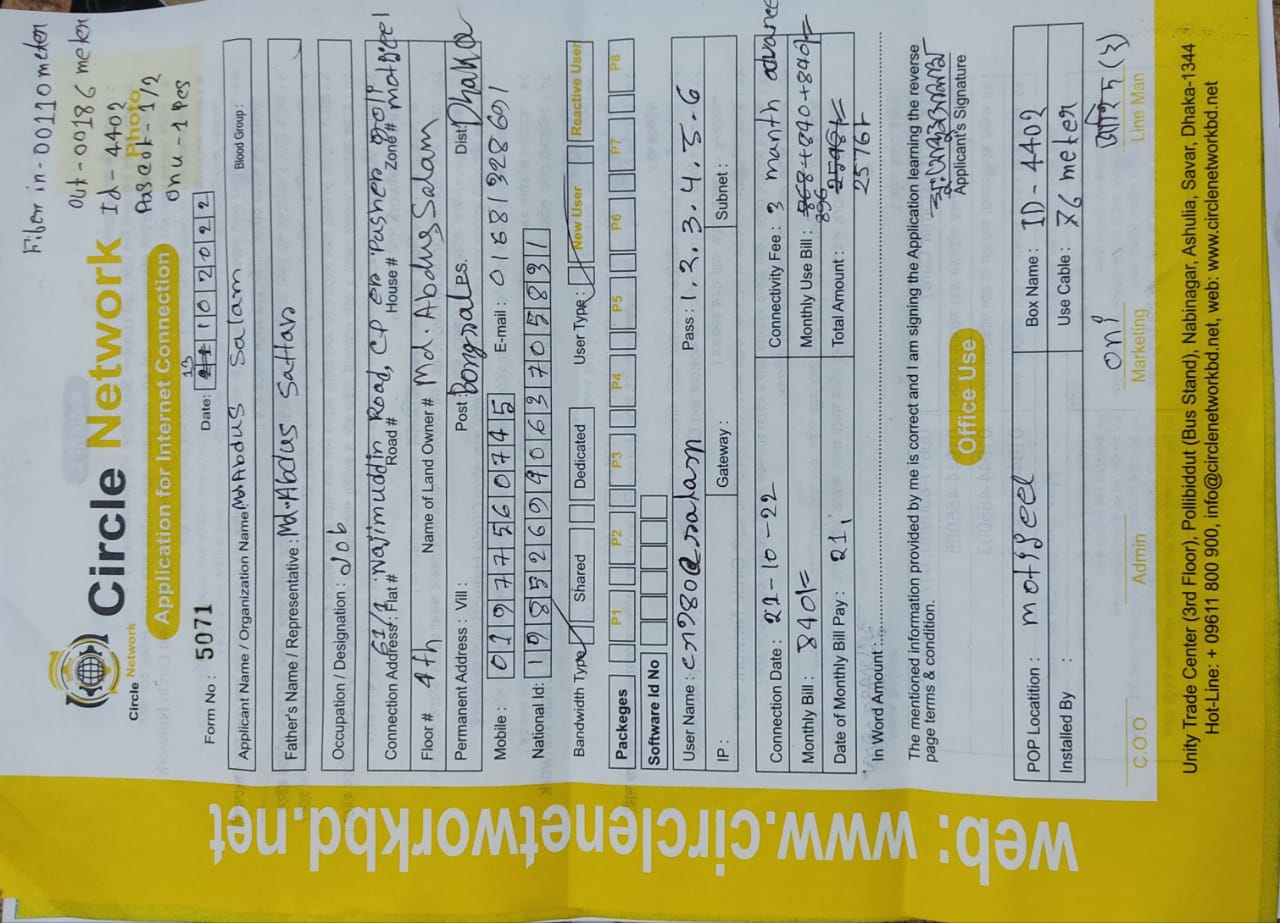 Fiber in - 00110 meter
Out - 00186 meter
Id - 4402
Photo
Pascot - 1/2
onu - 1 Pes
Circle Network
Circle Network
Application for Internet Connection
Form No : 5071
Date: 13 10 2022
Applicant Name / Organization Name: Md Abdus Salam
Blood Group :
Father's Name / Representative : Md. Abdus Sattar
Occupation / Designation : Job
61/1 Najimuddin Road, CP er Pasher goli
Connection Address: Flat # Road # House # Zone # motijeel
Floor # 4th Name of Land Owner # Md. Abdus Salam
Permanent Address : Vill : Post: Dist: Dhaka
Mobile : 01977560745 E-mail : 01681328691
National Id: 19852699063705831
Bandwidth Type Shared Dedicated User Type : New User Reactive User
Packeges P1 P2 P3 P4 P5 P6 P7 P8
Software Id No
User Name : cn980@salam Pass : 1.2.3.4.5.6
IP : Gateway : Subnet :
Connection Date : 21-10-22 Connectivity Fee : 3 manth advance
Monthly Bill : 840/= Monthly Use Bill : 868+840+840/=
896
Date of Monthly Bill Pay : 21, Total Amount : 2548/=
2576/-
In Word Amount :
The mentioned information provided by me is correct and I am signing the Application learning the reverse
page terms & condition.
Applicant's Signature
Office Use
POP Locatition : motijeel Box Name : ID - 4402
Installed By : Use Cable : 76 meter
oni
C.O.O Admin Marketing Line Man
Unity Trade Center (3rd Floor), Pollibiddut (Bus Stand), Nabinagar, Ashulia, Savar, Dhaka-1344
Hot-Line: + 09611 800 900, info@circlenetworkbd.net, web: www.circlenetworkbd.net
web: www.circlenetworkbd.net